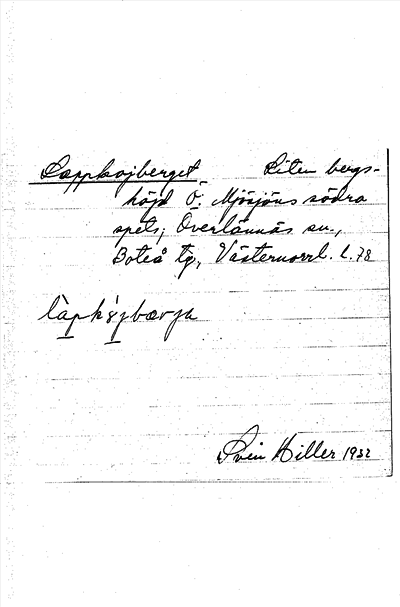 Lappkojberget Liten bergs-
höjd Ö. Mjösjöns södra
spets, Överlännäs sn.,
Boteå tg, Västernorrl. l. 78
làpkǫ́jbærjə
Sven Hiller 1932